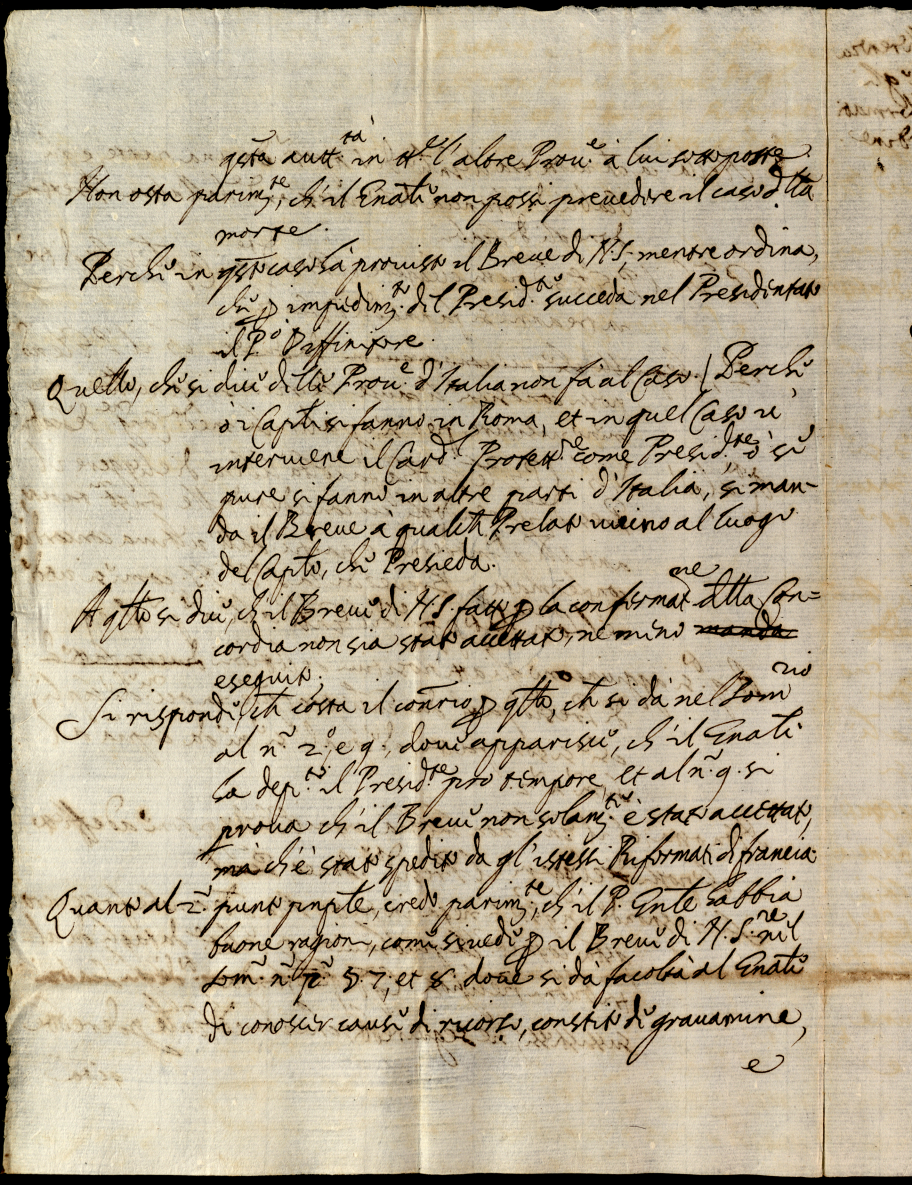 qsta autt.tà in tt.e l'altre Prou.e à lui sottoposte.
Non osta parim.te, ch'il Gnãle non possi prevedire il caso d.lla
morte.
Perche in qsto caso hà provisto il Breve di N.S., mentre ordina,
che p impedim.to del Presid.te succeda nel Presidentato
il P.o Diffinitore.
Quello, che si dice delle Prou.e d'Italia non fà al Caso. / Perche
ò i Capli si fanno in Roma, et in quel Caso vi
interviene il Card.l Protett.re come Presid.te ò se
pure si fanno in altre parti d'Italia, si man-
da il Breve à qualche Prelato vicino al luogo
del Caplo, che Presieda.
A qsto si dice, ch'il Breve di N.S. fatto p la confirmat.ne della Con=
cordia non sia stato accettato, ne meno manda
eseguito.
Si rispondi, che costa il conrio p qsto, che si dà nel Som.rio
al n.o 2.o e 9., dove apparisce, ch'il Gnãle
hà dep.to il Presid.te pro tempore, et al n.o 9. si
prova ch'il Breve non solam.te è stato accettato,
mà ch'è stato spedito da gl'istessi Riformati di francia.
Quanto al 2.o punto pnpte, credo parim.te, ch'il P. Gnãle habbia
buone ragioni, come si vede p il Breve di N.S.re nel
Som.o n.o p.o 5. 7, et 8. dove si dà facoltà al Gnãle
di conoscer cause di ricorso, constito de gravamine,
e